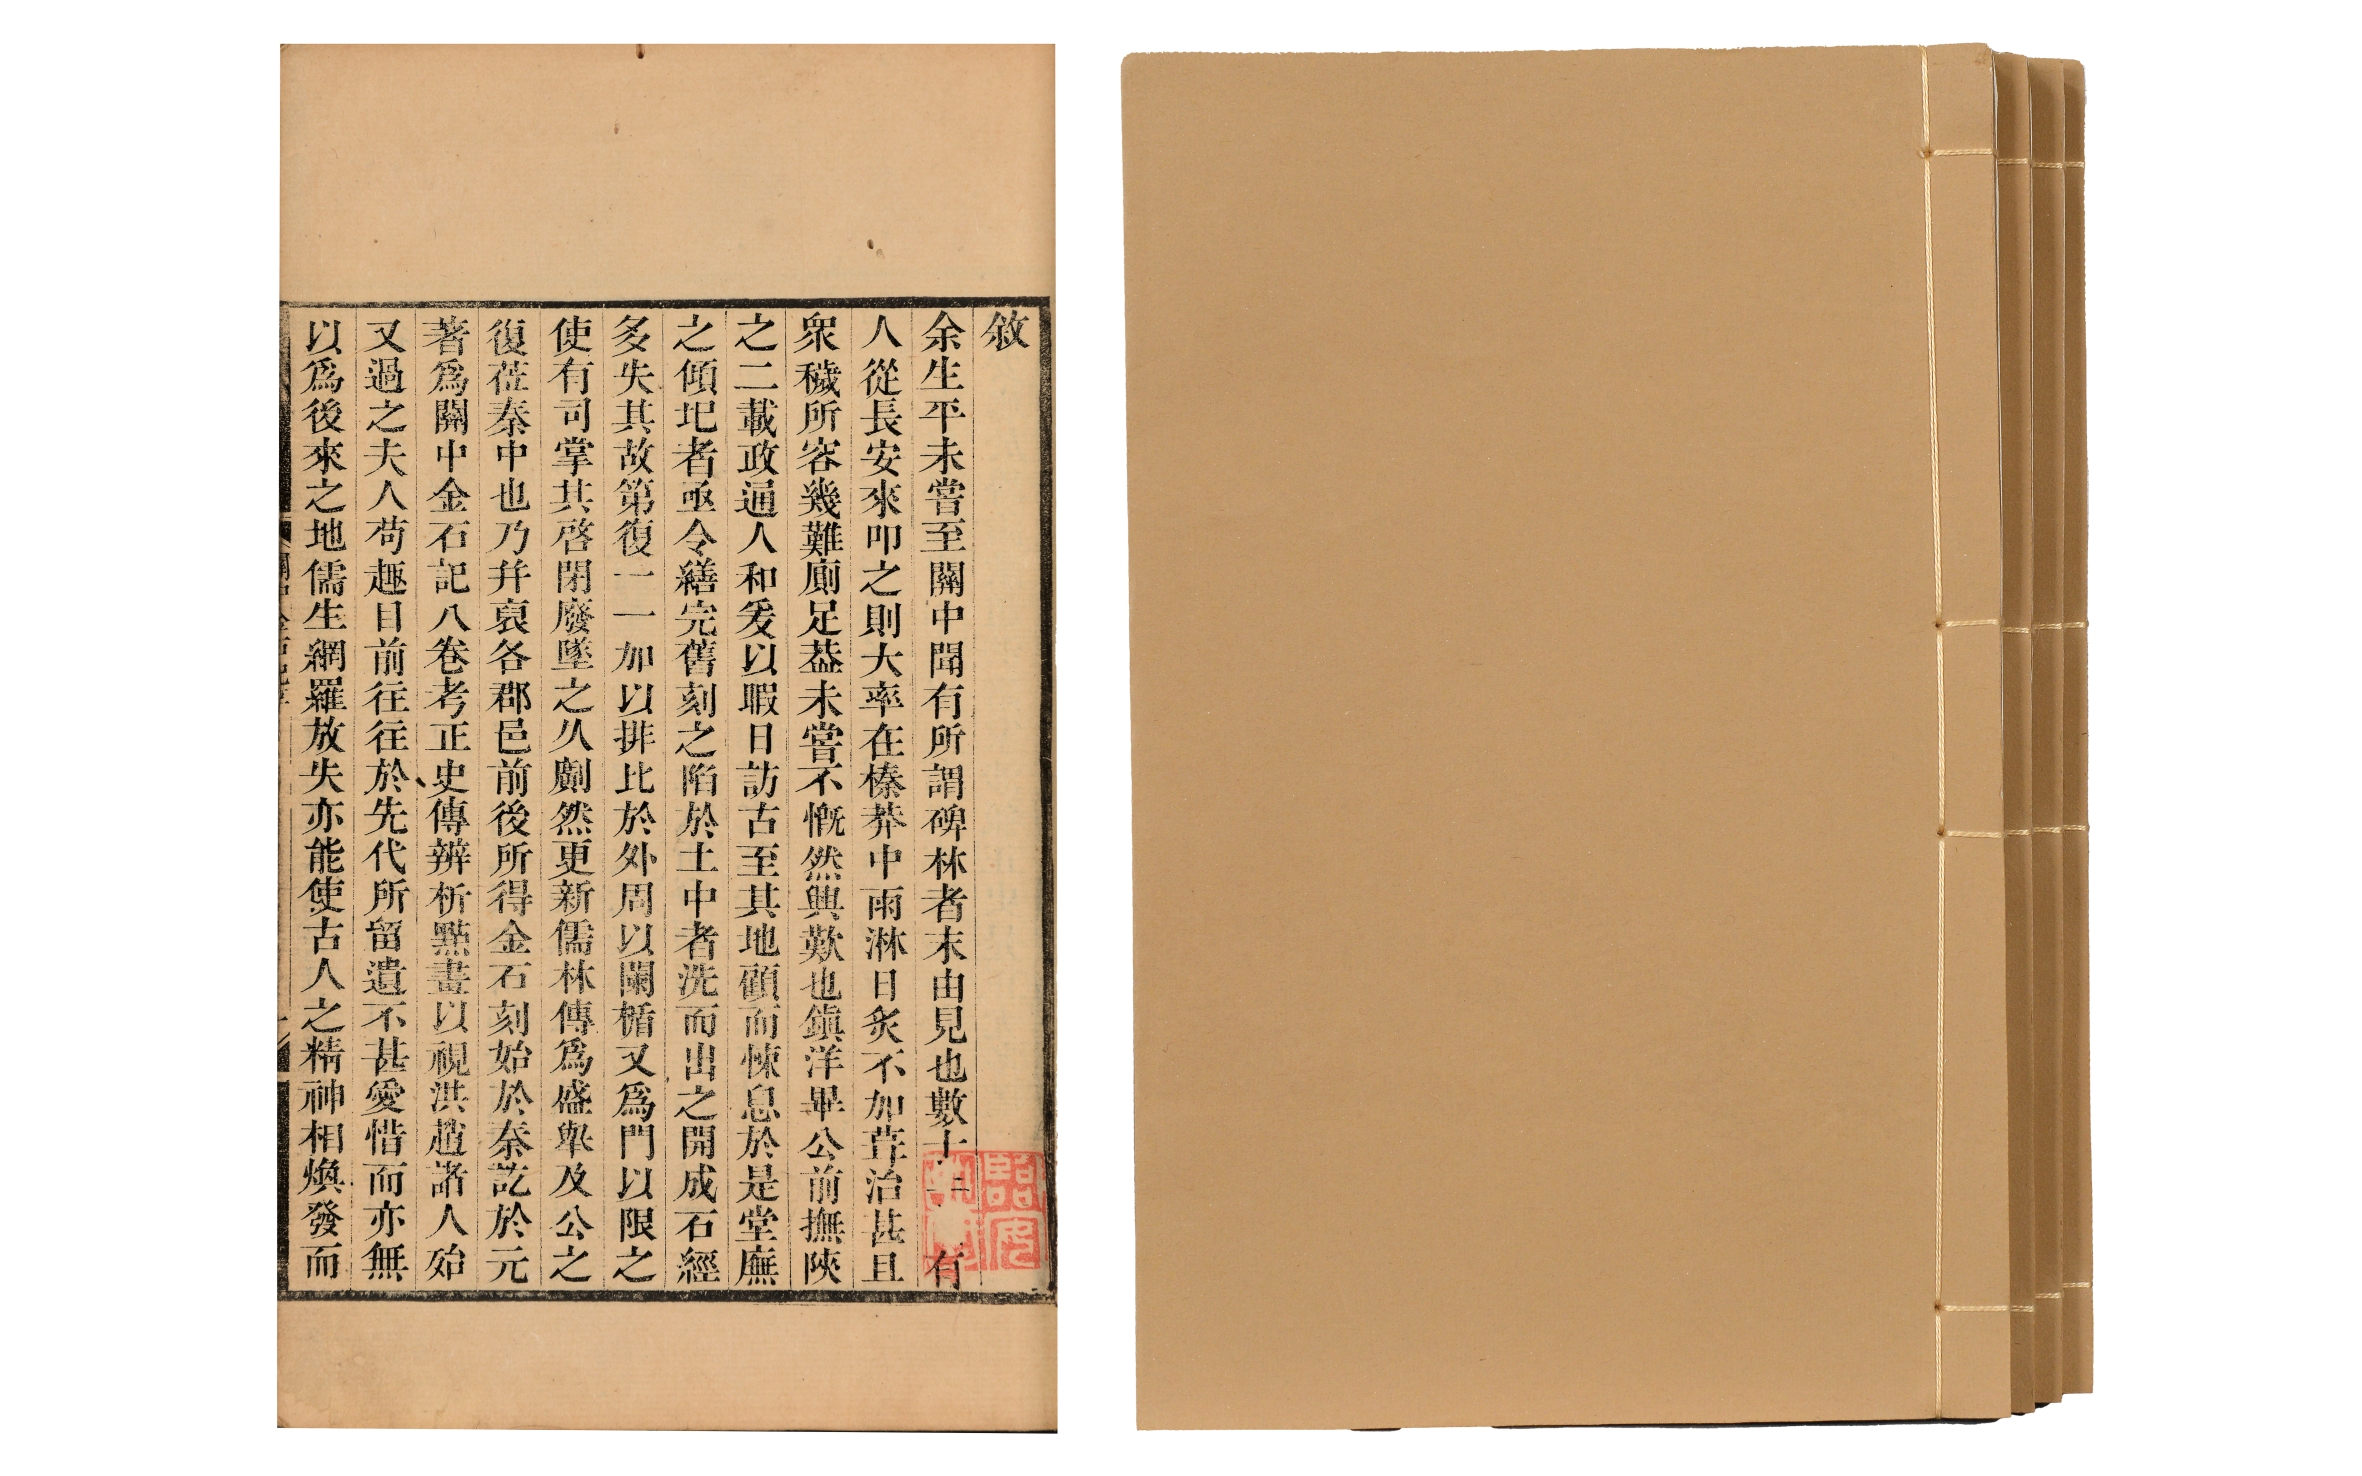 敘
余生平未嘗至關中聞有所謂碑林者末由見也數十年 有
人從長安來叩之則大率在榛莽中雨淋日炙不加葺治甚且
衆穢所容幾難廁足葢未嘗不慨然興歎也鎮洋畢公前撫陝
之二載政通人和爰以暇日訪古至其地顧而悚息於是堂廡
之傾圮者亟令繕完舊刻之陷於土中者洗而出之開成石經
多失其故第復一一加以排比於外周以闌楯又爲門以限之
使有司掌其啓閉廢墜之久劃然更新儒林傳爲盛舉及公之
復莅秦中也乃幷裒各郡邑前後所得金石刻始於秦訖於元
著爲關中金石記八卷考正史傳辨析點畫以視洪趙諸人殆
又過之夫人苟趣目前往往於先代所留遺不甚愛惜而亦無
以爲後來之地儒生網羅放失亦能使古人之精神相煥發而